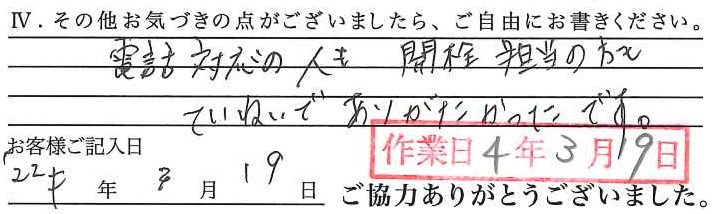 Ⅳ．その他お気づきの点がございましたら、ご自由にお書きください。
電話対応の人も 開栓担当の方も
ていねいで ありがたかったです。
お客様ご記入日
作業日 4年3月19日
22年 3月 19日
ご協力ありがとうございました。